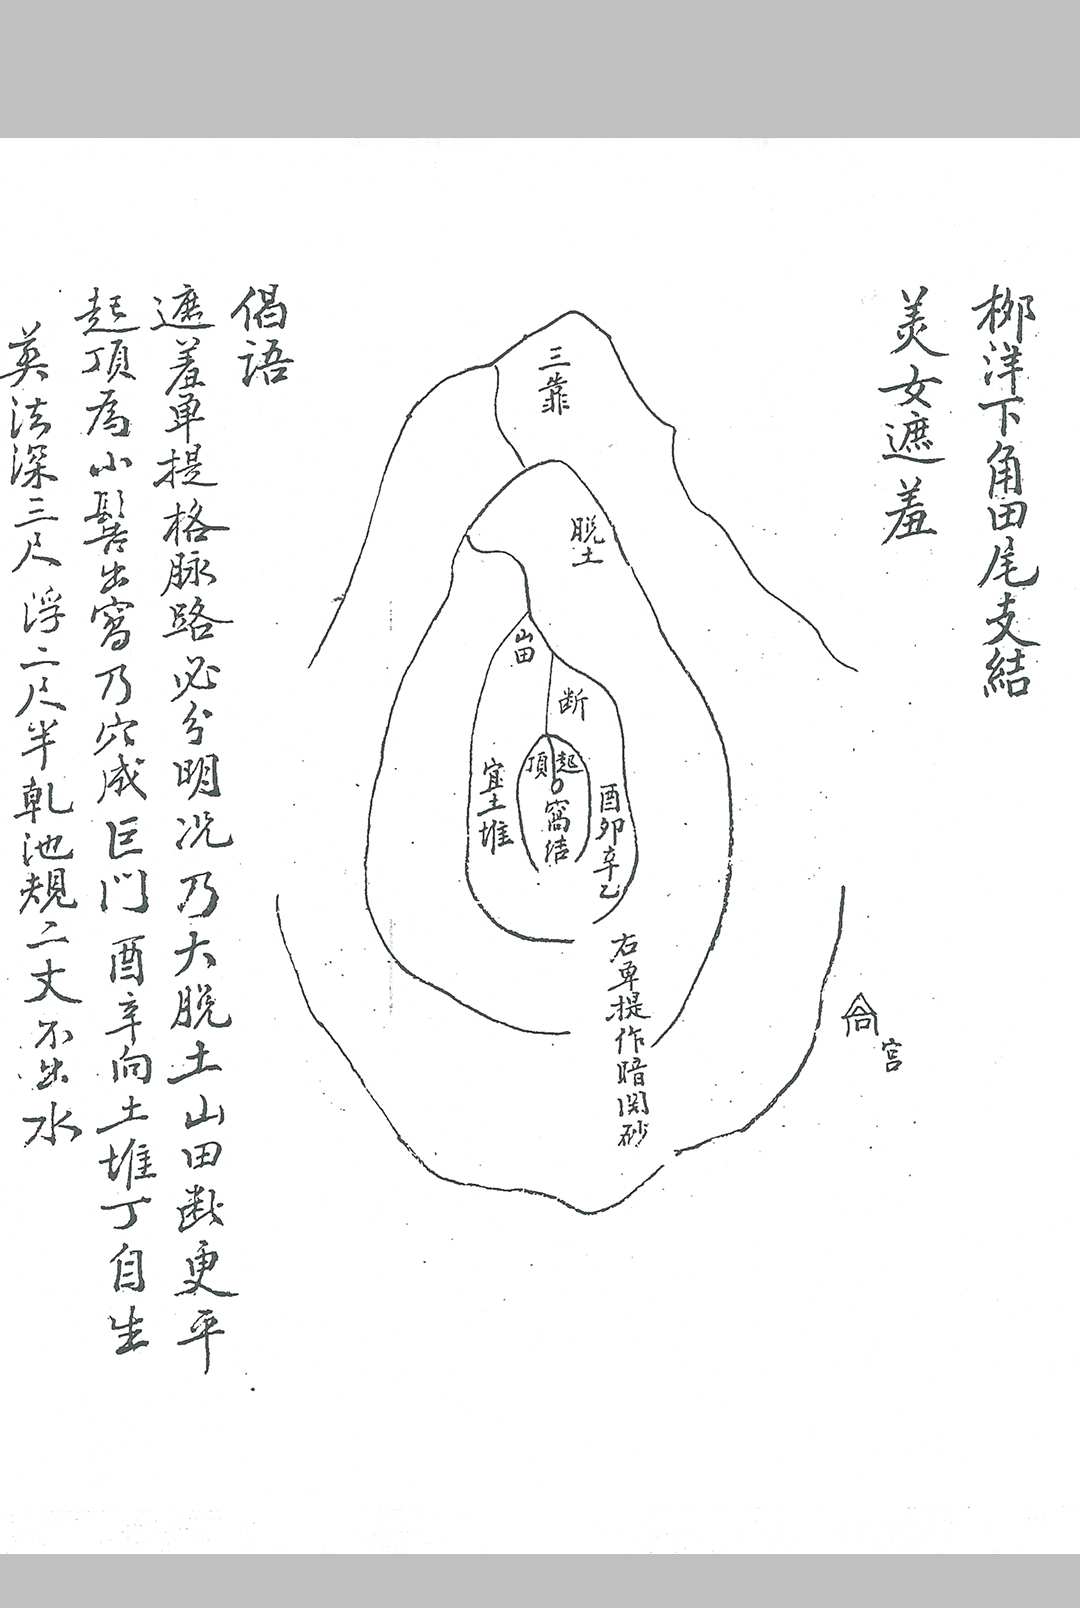 柳洋下角田尾支結
美女遮羞
三靠
脱土
山田
断
起頂
窩结
宜土堆
酉卯辛乙
右单提作暗関砂
宫
偈語
遮羞单提格脉路必分明况乃大脱土山田断更平
起頂為小髻出窩乃穴成巨门酉辛向土堆丁自生
葬法深三尺浮二尺半乹池規二丈不出水